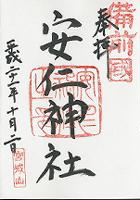 奉拝
備前國
安仁神社
平成二十一年十月二日
宮城山